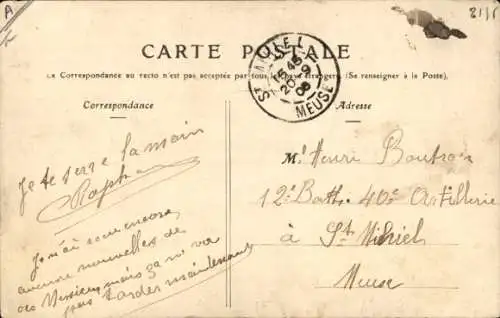 A
2115
CARTE POSTALE
La Correspondance au recto n'est pas acceptée par tous pays étrangers. (Se renseigner à la Poste).
ST MIHIEL
15 45
20 - 9
08
MEUSE
Correspondance
Adresse
Je te serre la main
Je n'ai encore
aucune nouvelles de
ces Messieurs mais ça ne va
pas tarder maintenant
Mr Henri Boutron
12e Batt. 40e Artillerie
à St Mihiel
Meuse